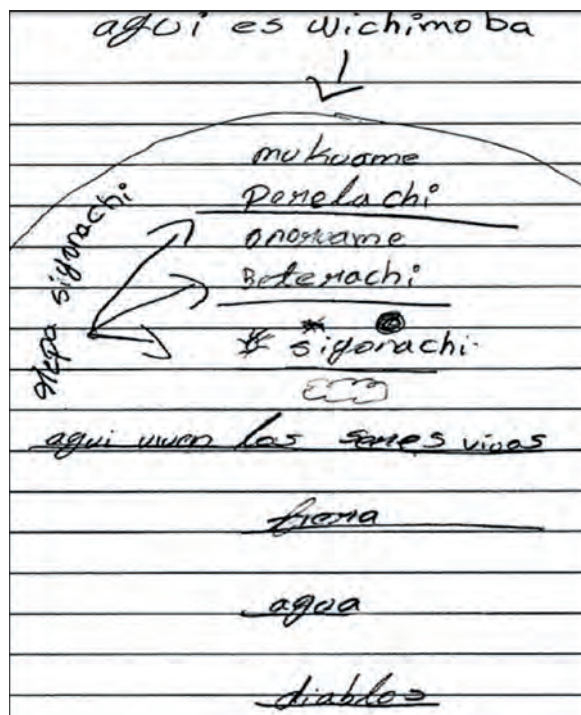 aqui es wichimoba
mukuame
Perelachi
onoruame
Beterachi
sigorachi
repa sigorachi
aqui viven los seres vivos
tierra
agua
diablos